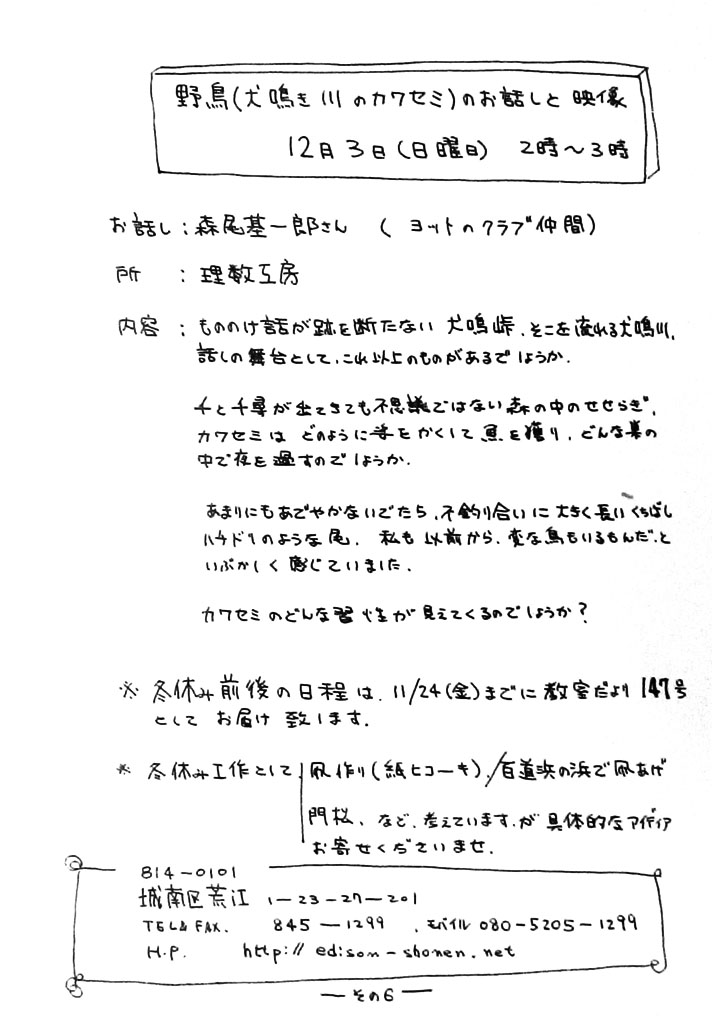 野鳥(犬鳴き川のカワセミ)のお話しと 映像
12月3日(日曜日) 2時〜3時
お話し : 森尾基一郎さん ( ヨットのクラブ仲間)
所 : 理数工房
内容 : もののけ話が跡を断たない 犬鳴峠、そこを流れる犬鳴川、
話しの舞台として、これ以上のものがあるでしょうか.
千と千尋が出てきても不思議ではない森の中のせせらぎ、
カワセミは どのように姿をかくして 魚を獲り、どんな巣の
中で夜を過すのでしょうか.
あまりにもあでやかないでたち、不釣り合いに大きく長いくちばし
ハチドリのような尾. 私も以前から、変な鳥もいるもんだ、と
いぶかしく感じていました.
カワセミのどんな習性が見えてくるのでしょうか?
※ 冬休み前後の日程は、11/24(金)までに教室だより147号
として お届け 致します.
※ 冬休み工作として 凧作り(紙ヒコーキ)、/百道浜の浜で凧あげ
門松、など、考えていますが 具体的なアイディア
お寄せくださいませ.
814-0101
城南区荒江 1-23-27-201
TEL&FAX. 845-1299 、モバイル 080-5205-1299
H.P. http://edison-shonen.net
— その6 —